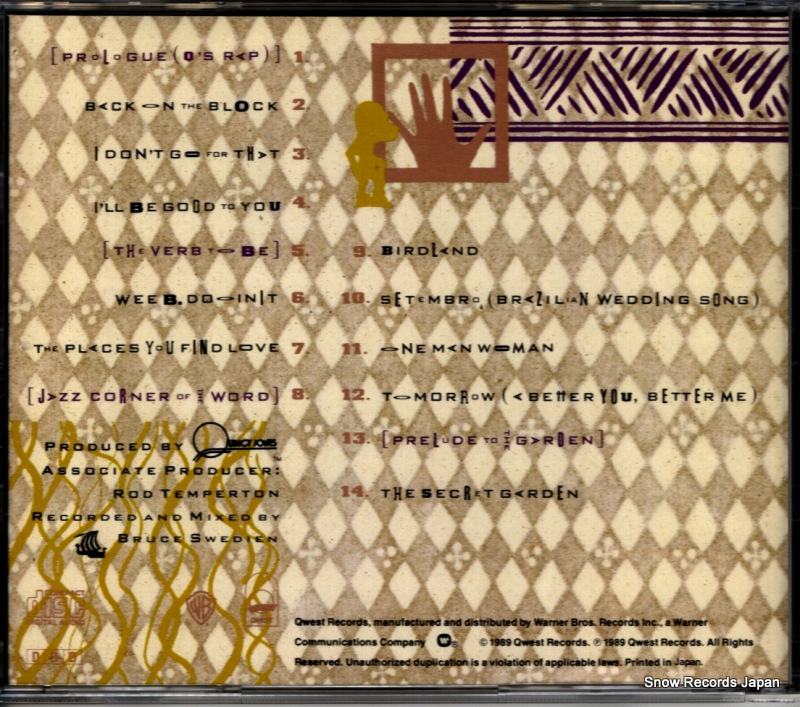 [PROLOGUE (Q'S RAP)] 1.
BACK ON THE BLOCK 2.
I DON'T GO FOR THAT 3.
I'LL BE GOOD TO YOU 4.
[THE VERB TO BE] 5.
WEE B. DOOINIT 6.
THE PLACES YOU FIND LOVE 7.
[JAZZ CORNER OF THE WORD] 8.
9. BIRDLAND
10. SETEMBRO (BRAZILIAN WEDDING SONG)
11. ONE MAN WOMAN
12. TOMORROW (A BETTER YOU, BETTER ME)
13. [PRELUDE TO THE GARDEN]
14. THE SECRET GARDEN
PRODUCED BY QUINCY JONES™
ASSOCIATE PRODUCER:
ROD TEMPERTON
RECORDED AND MIXED BY
BRUCE SWEDIEN
COMPACT
disc
DIGITAL AUDIO
WB
Qwest Records, manufactured and distributed by Warner Bros. Records Inc., a Warner
Communications Company © 1989 Qwest Records. ℗ 1989 Qwest Records. All Rights
Reserved. Unauthorized duplication is a violation of applicable laws. Printed in Japan.
Snow Records Japan